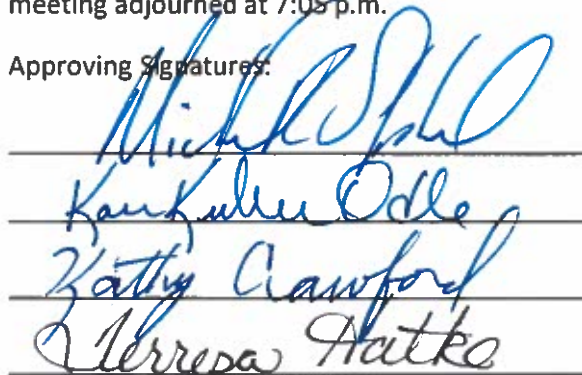 meeting adjourned at 7:05 p.m.
Approving Signatures:
Odle
Kathy Crawford
Terresa Hatke